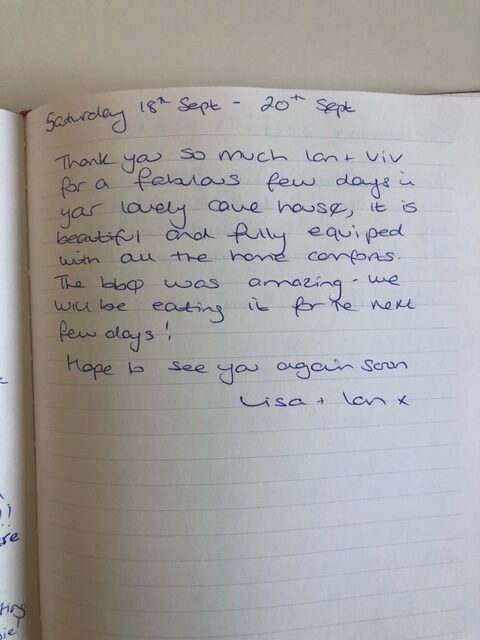 Saturday 18th Sept - 20th Sept
Thank you so much Ian + Viv
for a fabulous few days in
your lovely cave house, it is
beautiful and fully equiped
with all the home comforts.
The bbq was amazing - we
will be eating it for the next
few days!
Hope to see you again soon
Lisa + Ian x